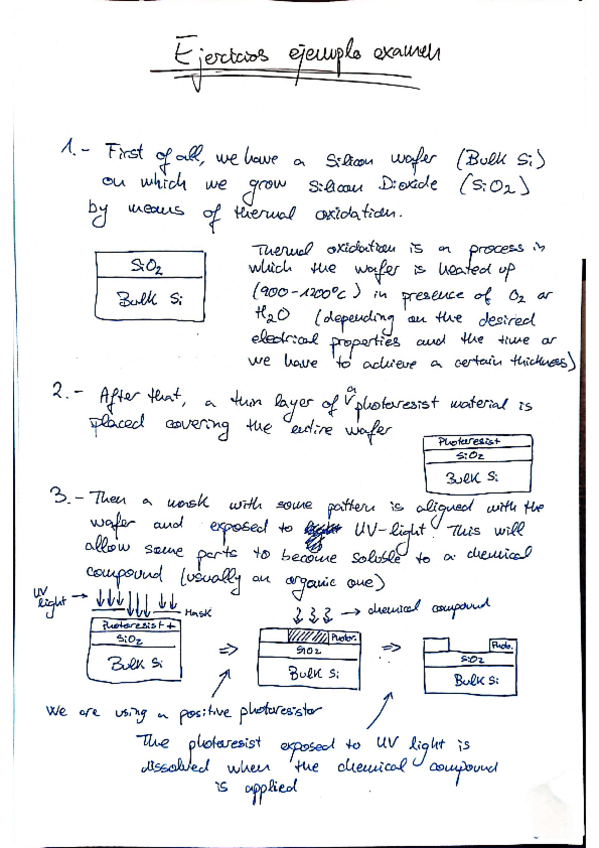 Ejercicios ejemplo examen
1.- First of all, we have a Silicon wafer (Bulk Si)
on which we grow Silicon Dioxide (SiO2)
by means of thermal oxidation.
SiO2
Bulk Si
Thermal oxidation is a process in
which the wafer is heated up
(900-1200ºc) in presence of O2 or
H2O (depending on the desired
electrical properties and the time or
we have to achieve a certain thickness)
2.- After that, a thin layer of a photoresist material is
placed covering the entire wafer
Photoresist
SiO2
Bulk Si
3.- Then a mask with some pattern is aligned with the
wafer and exposed to UV-light. This will
allow some parts to become soluble to a chemical
compound (usually an organic one)
UV light →
Mask
Photoresist +
SiO2
Bulk Si
⇒
→ chemical compound
Photor.
SiO2
Bulk Si
⇒
Photo.
SiO2
Bulk Si
We are using a positive photoresistor
The photoresist exposed to UV light is
dissolved when the chemical compound
is applied